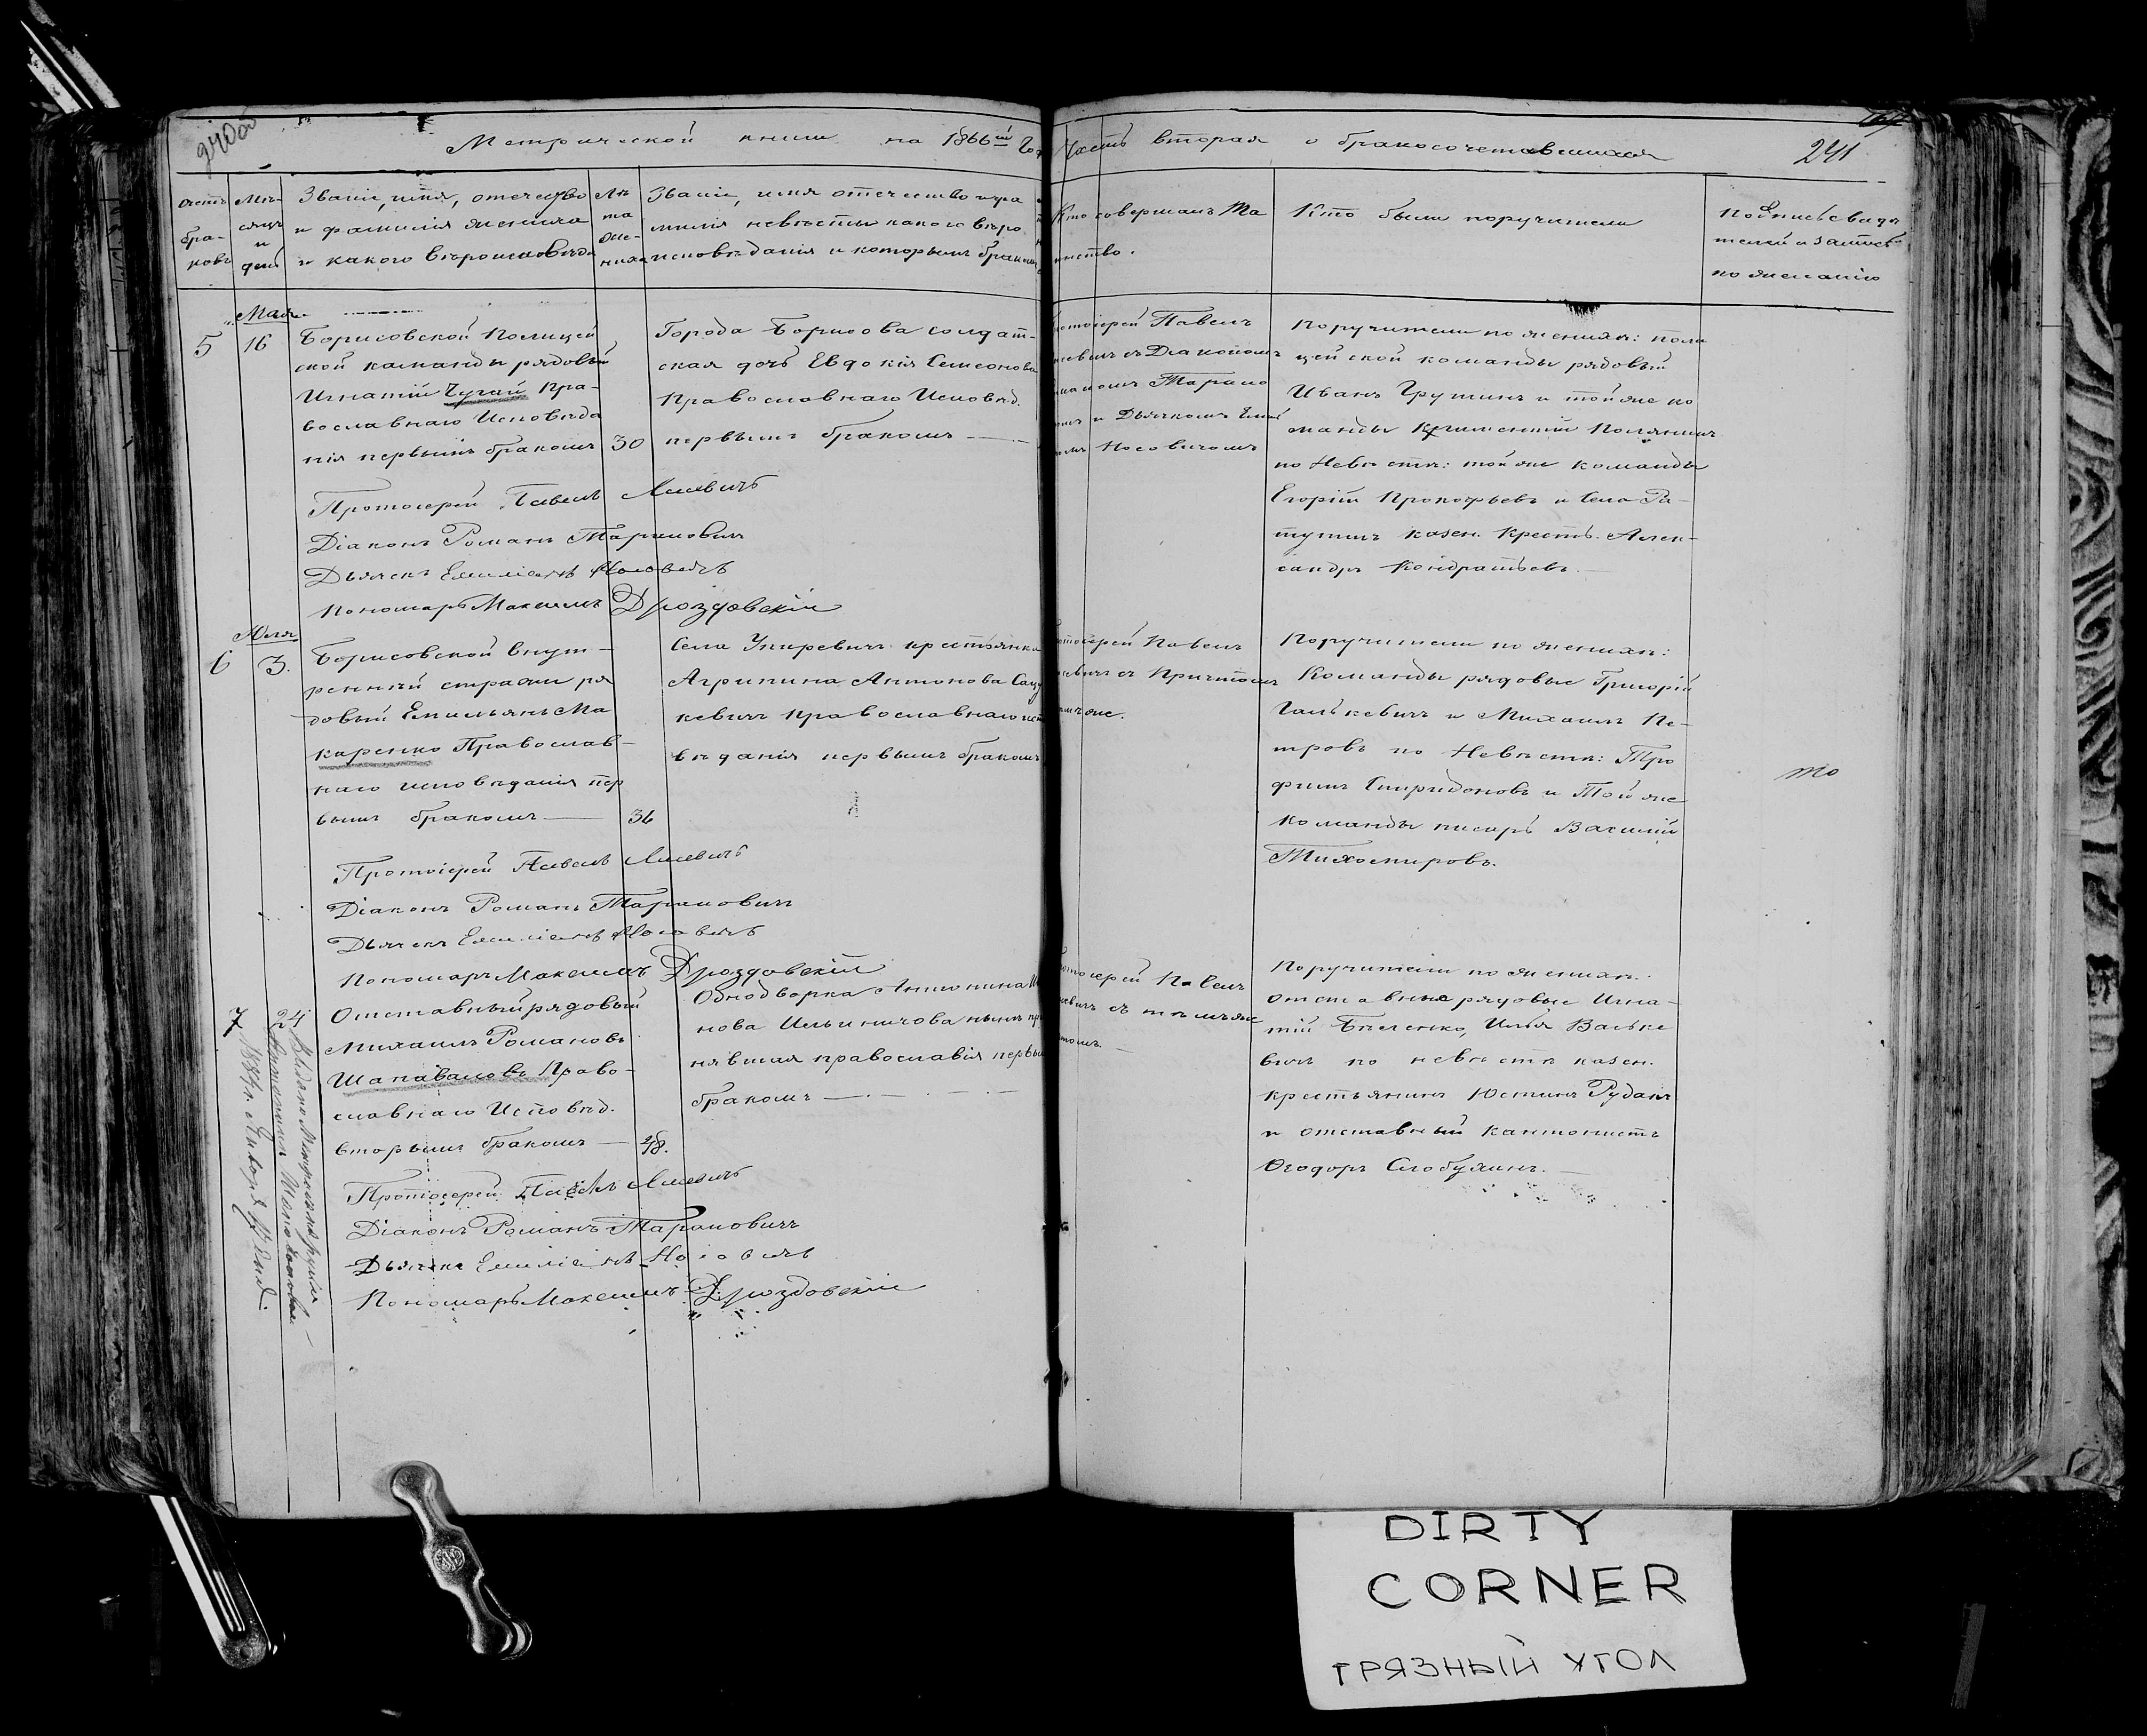 240об
Метрической книги на 1866й Го
Часть вторая о бракосочетавшихся
241
Счетъ бра-ковъ
Мѣ-сяцъ и день
Званіе, имя, отечество
и фамилія жениха
и какого вѣроисповѣда
Лѣ-та же-ниха
Званіе, имя отечество и фа
милія невѣсты какого вѣро
исповѣданія и которымъ бракомъ
Кто совершалъ Та
инство.
Кто были поручители
Подпись свидѣ
телей и записи
по желанію
Мая
5
16
Борисовской Полицей
ской каманды рядовый
Игнатій Чугай Пра-
вославнаго Исповѣда
нія первымъ бракомъ
30
Города Борисова солдат-
ская дочь Евдокія Семеонова
Православнаго Исповѣд.
первымъ бракомъ
тоіерей Павелъ
евичъ съ Діакономъ
маномъ Тарано
и Дьячкомъ Емил
Носовичомъ
Поручители по женихѣ: поли
цейской команды рядовый
Иванъ Грутинъ и той же ко
манды
по Невѣстѣ: той же команды
Егорій Прокофьевъ и Села Ра-
тутичъ казен. Крестъ. Алек-
сандръ Кондратьевъ.
Протоіерей Павелъ
Діаконъ Романъ Тарановичъ
Дьячекъ Емиліанъ Носовичъ
Пономарь Максимъ Дроздовскій
Юля
6
3.
Борисовской внут-
ренный стражи ря
довый Емильянъ Ма
каренко Православ-
наго исповѣданія пер
вымъ бракомъ
36
Села Упиревичъ крестьянка
Агрипина Антонова Сац
кевичъ православнаго исп
вѣданія первымъ бракомъ
тоіерей Павелъ
евичъ съ Причтомъ
тѣмъ же.
Поручители по женихѣ:
Команды рядовые Григорій
Галькевичъ и Михаилъ Пе-
тровъ по Невѣстѣ: Тро
фимъ Спиридоновъ и Той же
команды писарь Василій
Тихомировъ.
то
Протоіерей Павелъ
Діаконъ Романъ Тарановичъ
Дьячекъ Емиліанъ Носовичъ
Пономарь Максимъ Дроздовскій
7
24
Отставный рядовый
Михаилъ Романовъ
Шапаваловъ Право-
славнаго Исповѣд.
вторымъ бракомъ
48.
Однодворка Антонина
нова Ильиничова нынѣ пр
нявшая православія первы
бракомъ
тоіерей Павелъ
евичъ съ тѣмъ же
томъ.
Поручители по женихѣ:
отставные рядовые Игна-
тій Беленко, Илья Вальке
вичъ по невѣстѣ казен.
крестьянинъ Юстинъ Рудакъ
и отставный кантонистъ
Ѳеодоръ Слобухинъ.
Протоіерей Павелъ
Діаконъ Романъ Тарановичъ
Дьячекъ Емиліанъ Носовичъ
Пономарь Максимъ Дроздовскій
Выдано
1884 г.
DIRTY
CORNER
ГРЯЗНЫЙ УГОЛ